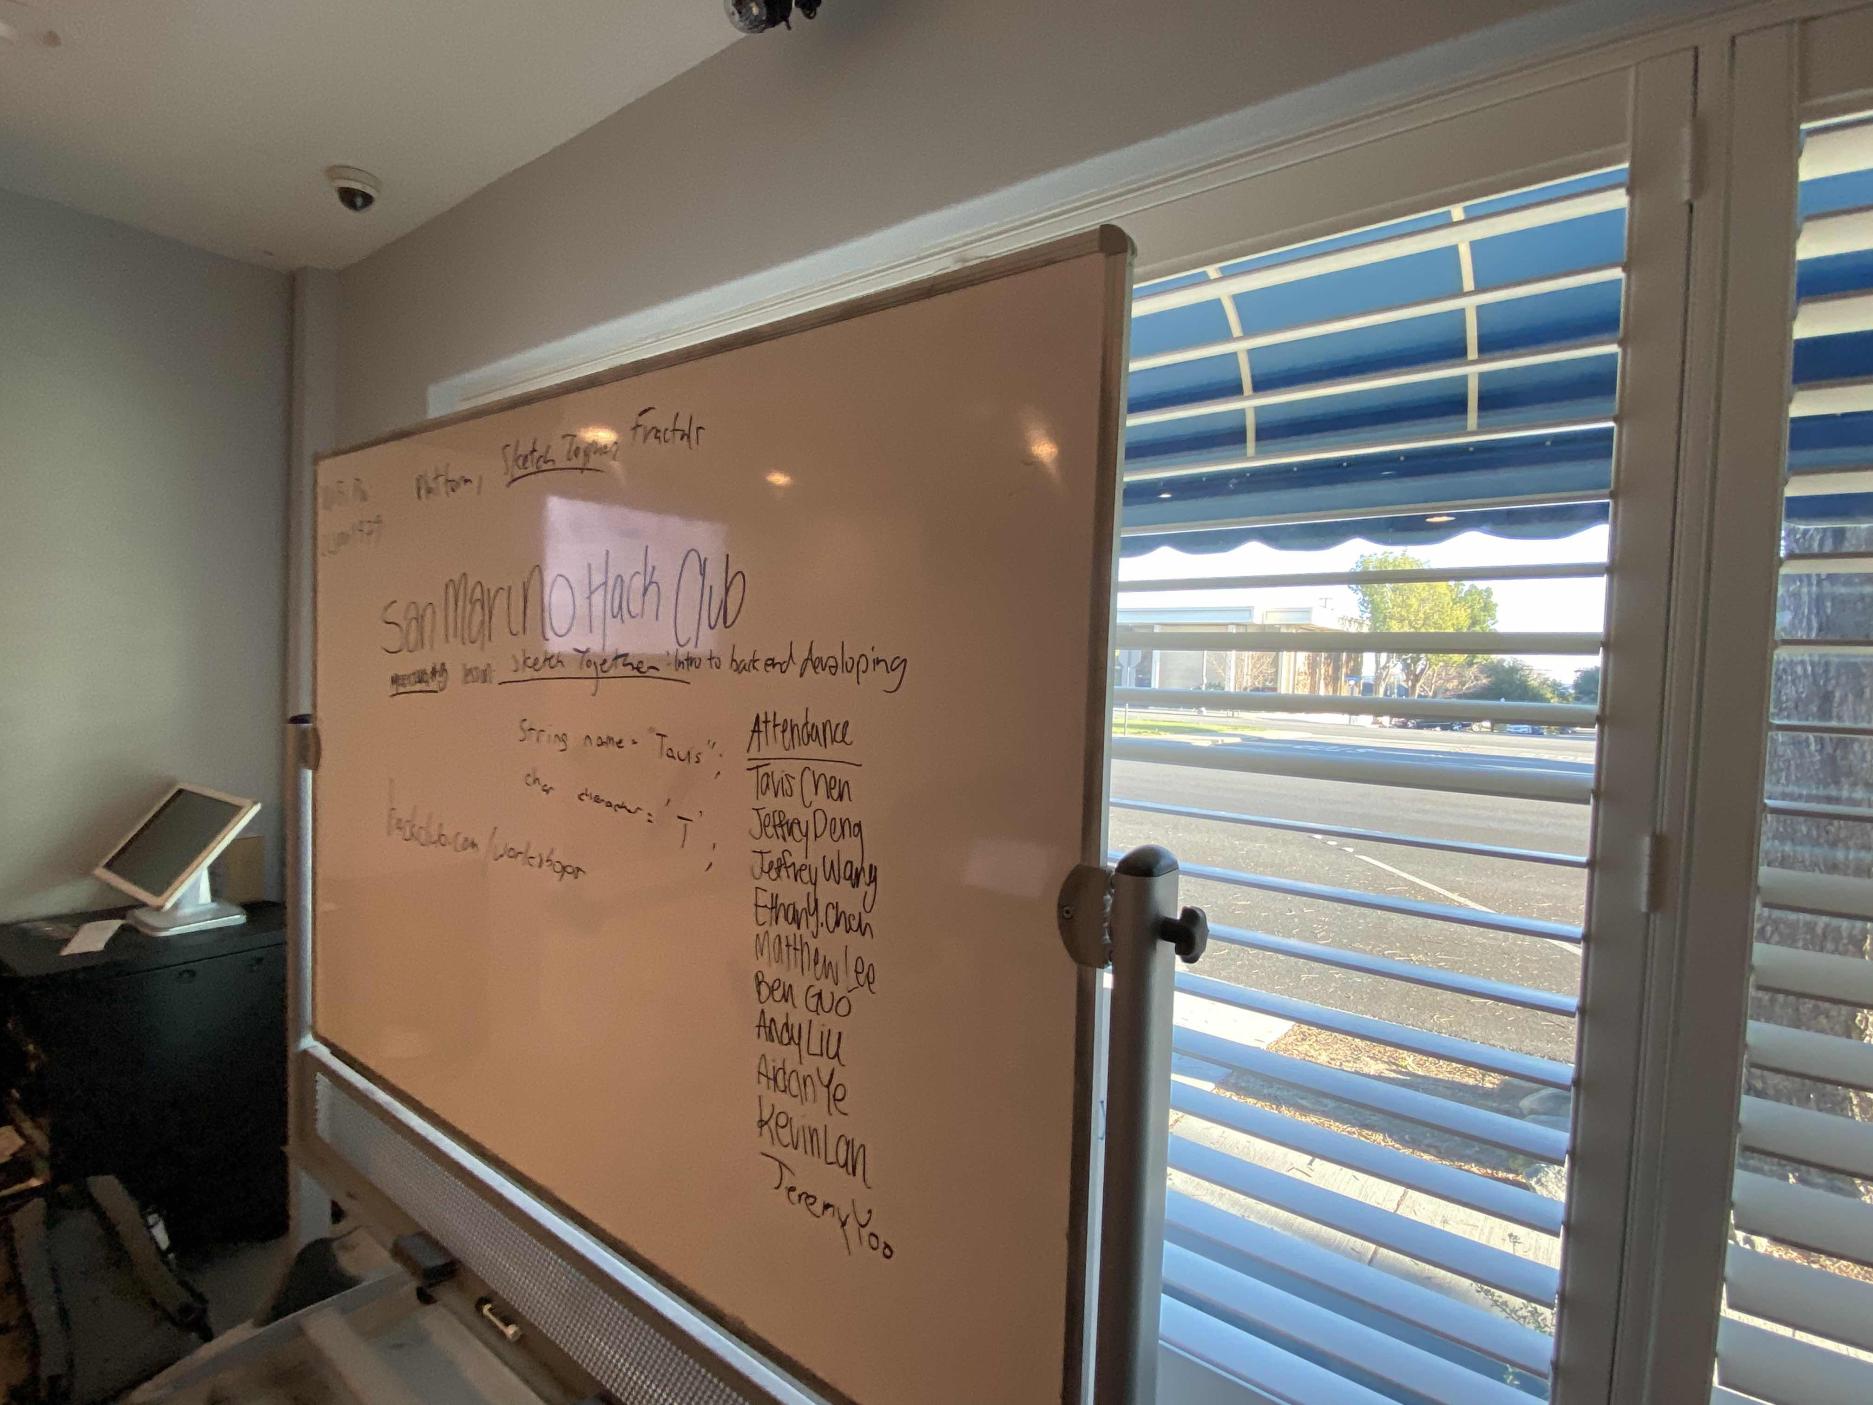 Platform, Sketch Together, Fractals
San Marino Hack Club
lesson: Sketch Together: Intro to backend developing
String name = "Tavis";
char character = 'T';
hackclub.com/workshops
Attendance
Tavis Chen
Jeffrey Deng
Jeffrey Wang
Ethan Y. Chen
Matthew Lee
Ben Guo
Andy Liu
Aidan Ye
Kevin Lan
Jeremy Yoo